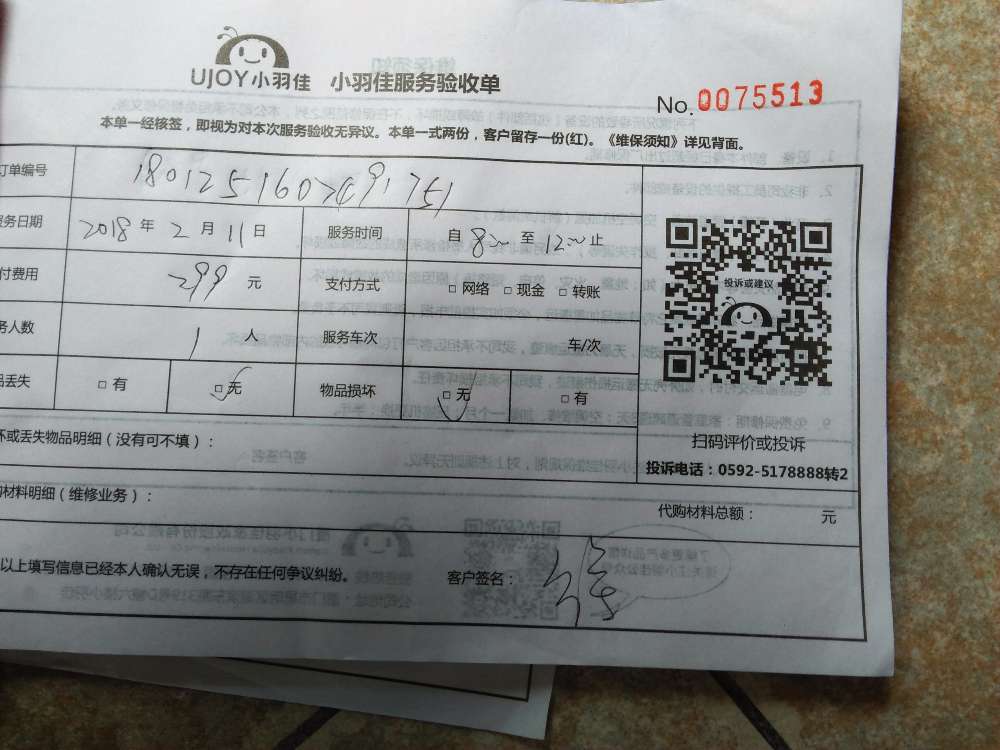 UJOY小羽佳 小羽佳服务验收单
No. 0075513
本单一经核签，即视为对本次服务验收无异议。本单一式两份，客户留存一份(红)。《维保须知》详见背面。
订单编号 1801251607491751
服务日期 2018年2月11日 服务时间 自8:00至12:00止
付费用 299元 支付方式 □网络 □现金 □转账
务人数 1人 服务车次 车/次
品丢失 □有 □无 物品损坏 □无 □有
投诉或建议
扫码评价或投诉
投诉电话：0592-5178888转2
坏或丢失物品明细（没有可不填）：
购材料明细（维修业务）： 代购材料总额： 元
以上填写信息已经本人确认无误，不存在任何争议纠纷。 客户签名：